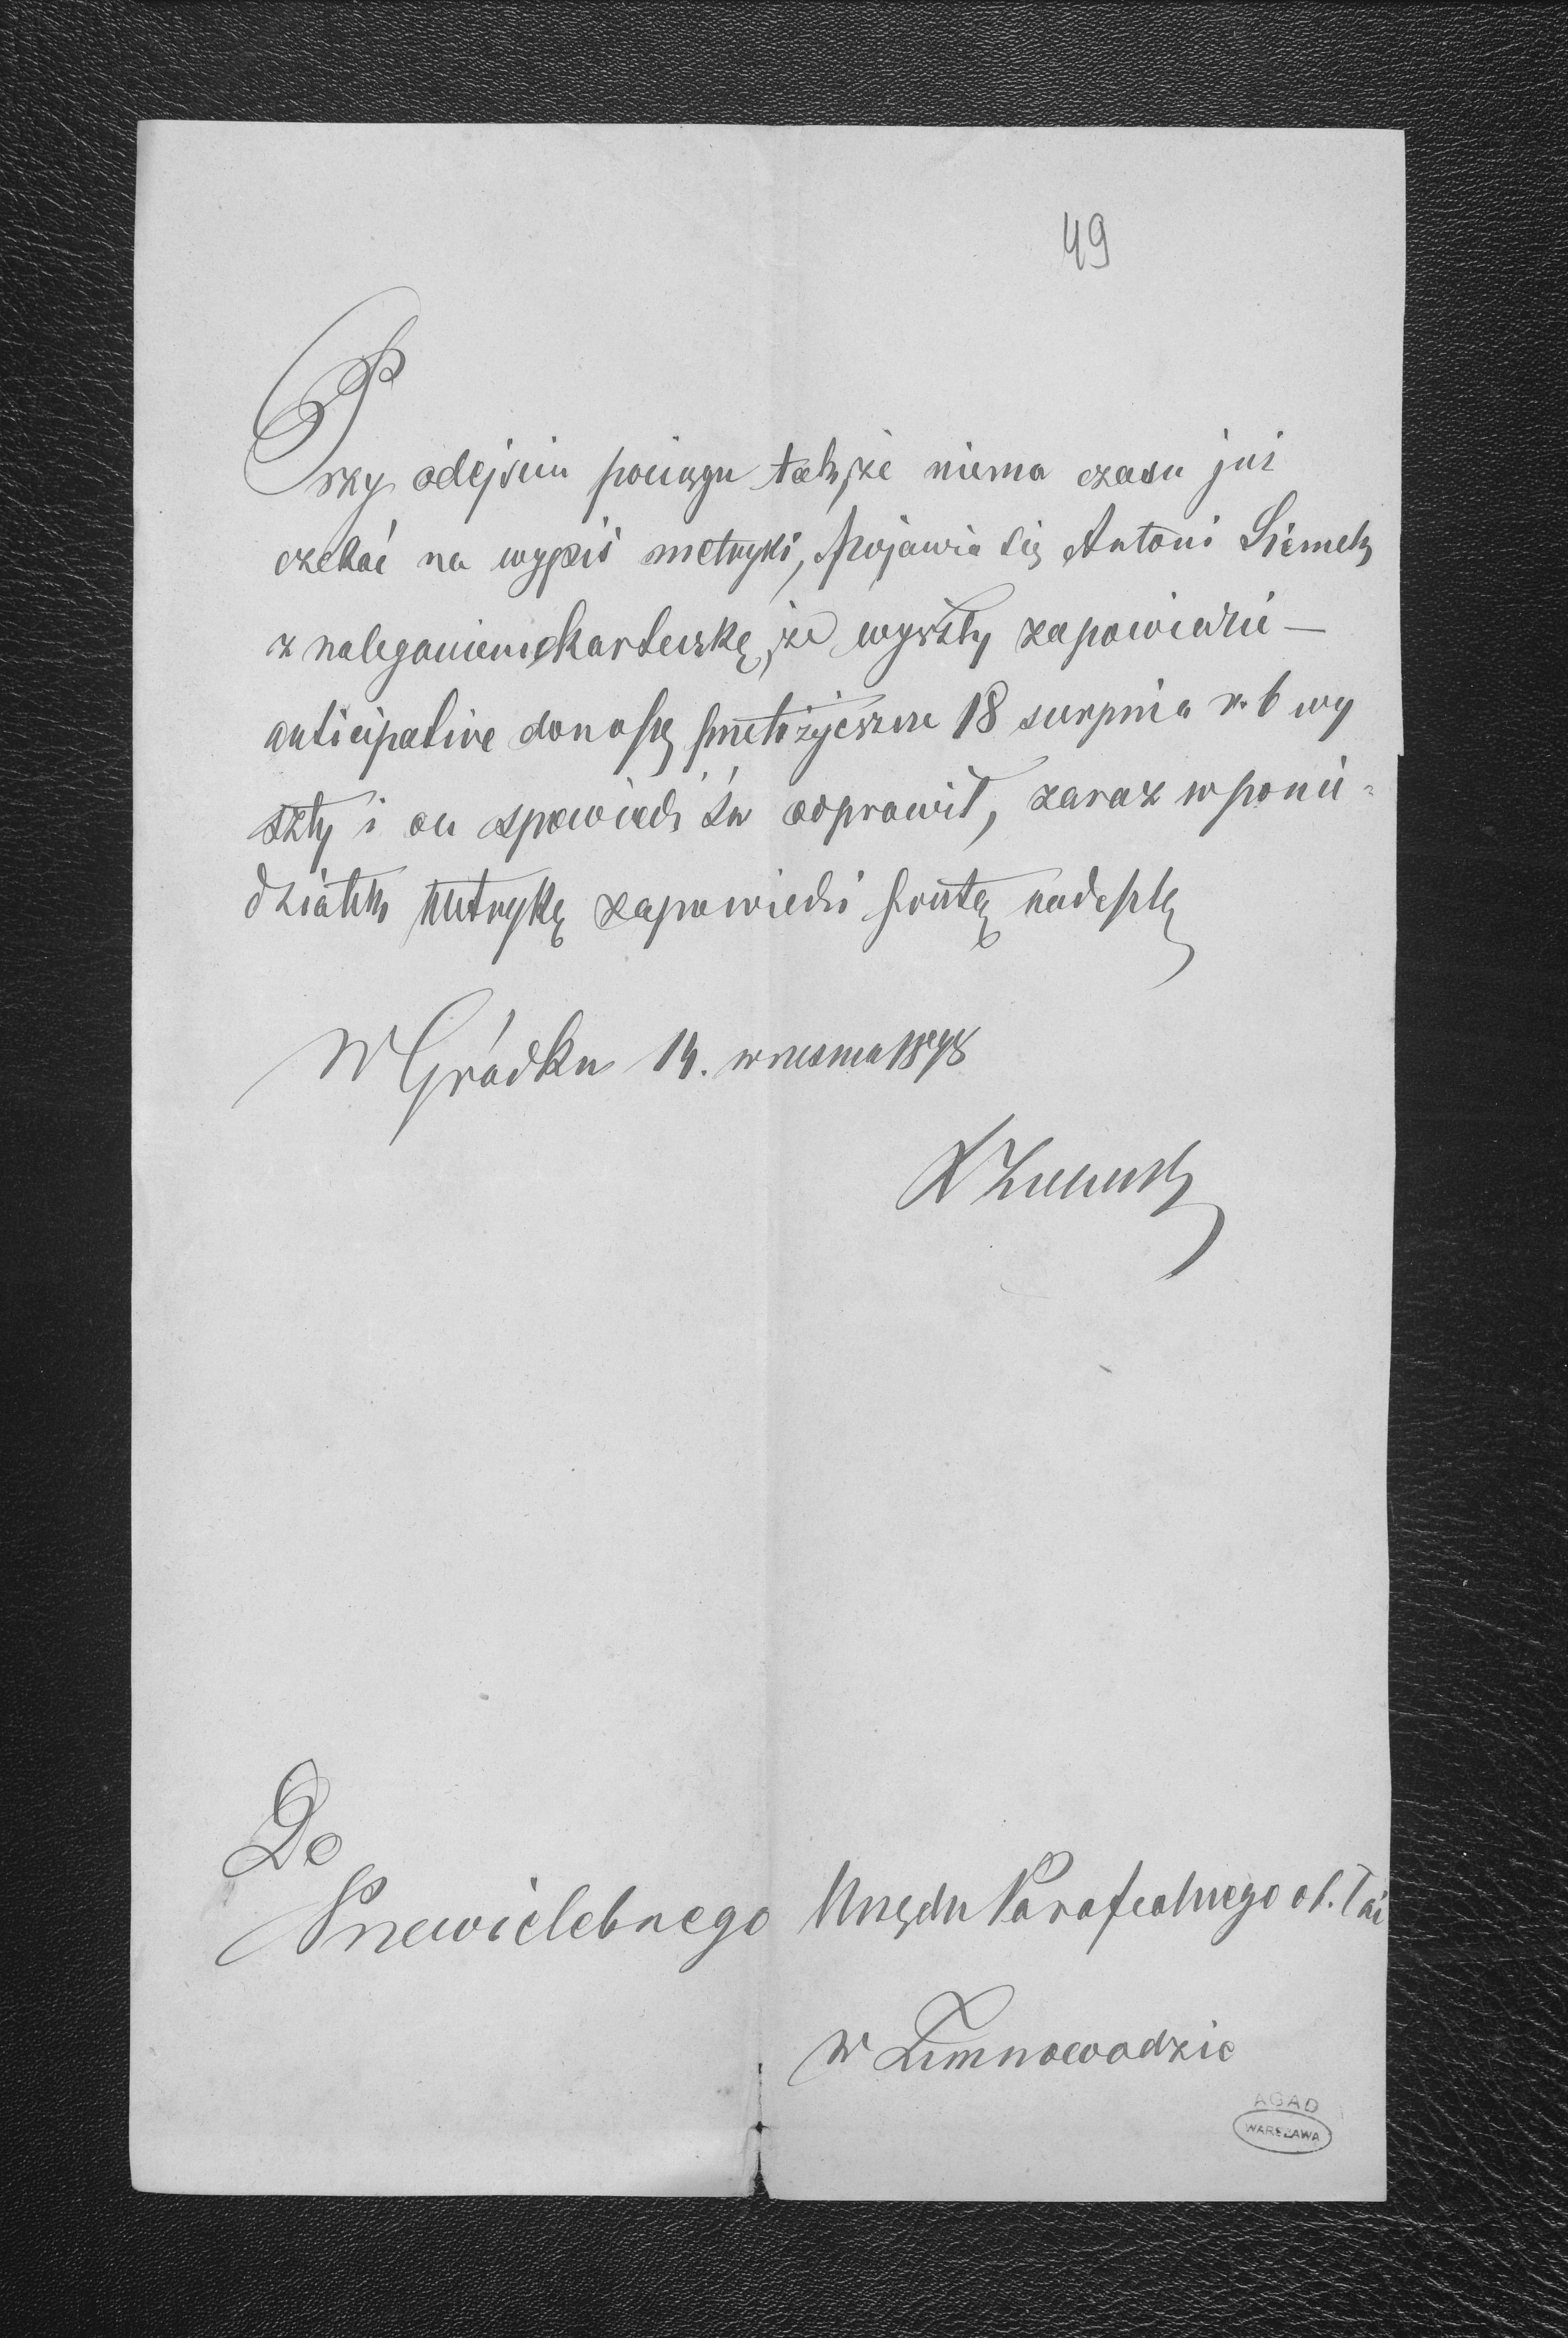 49
Przy odejściu pociągu tak, że niema czasu już
czekać na wypis metryki, pojawia się Antoni Siemek
z naleganiem karteczkę, że wyszły zapowiedzie —
anticipative donoszę 18 sierpnia r. b wy
szły i on spowiedź św odprawił, zaraz w ponie=
działek metrykę zapowiedzi nadeszlę
W Gródku 14. wrzesnia 1898
X
Do
Przewielebnego Urzędu Parafialnego ob. łać
w Zimnowodzie
AGAD
WARSZAWA